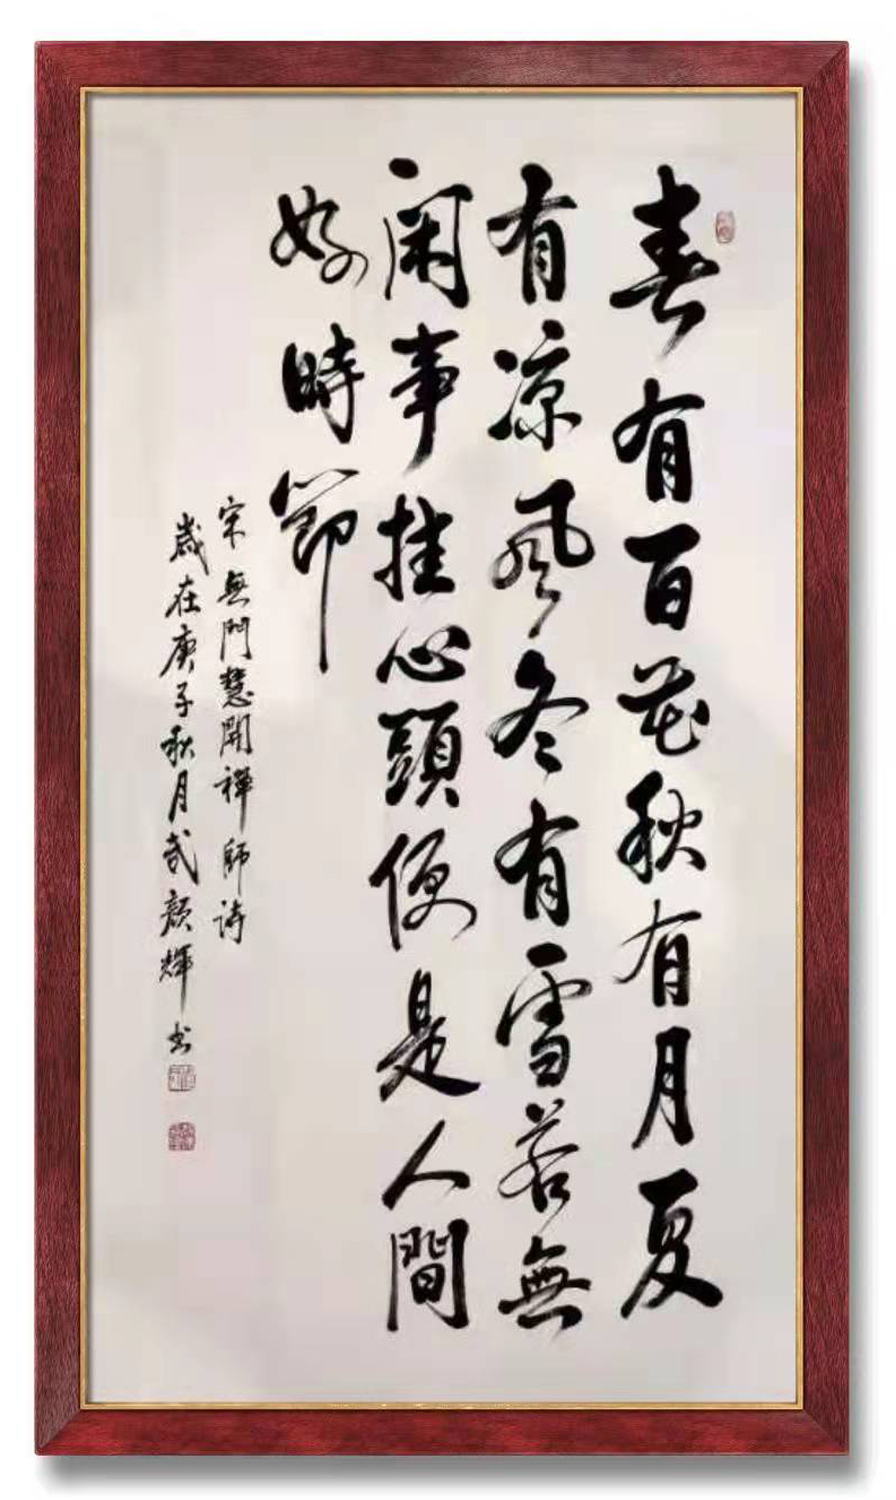 春有百花秋有月夏
有凉风冬有雪若無
闲事挂心頭便是人間
好時節
宋無門慧開禪師诗
歲在庚子秋月武顏輝书